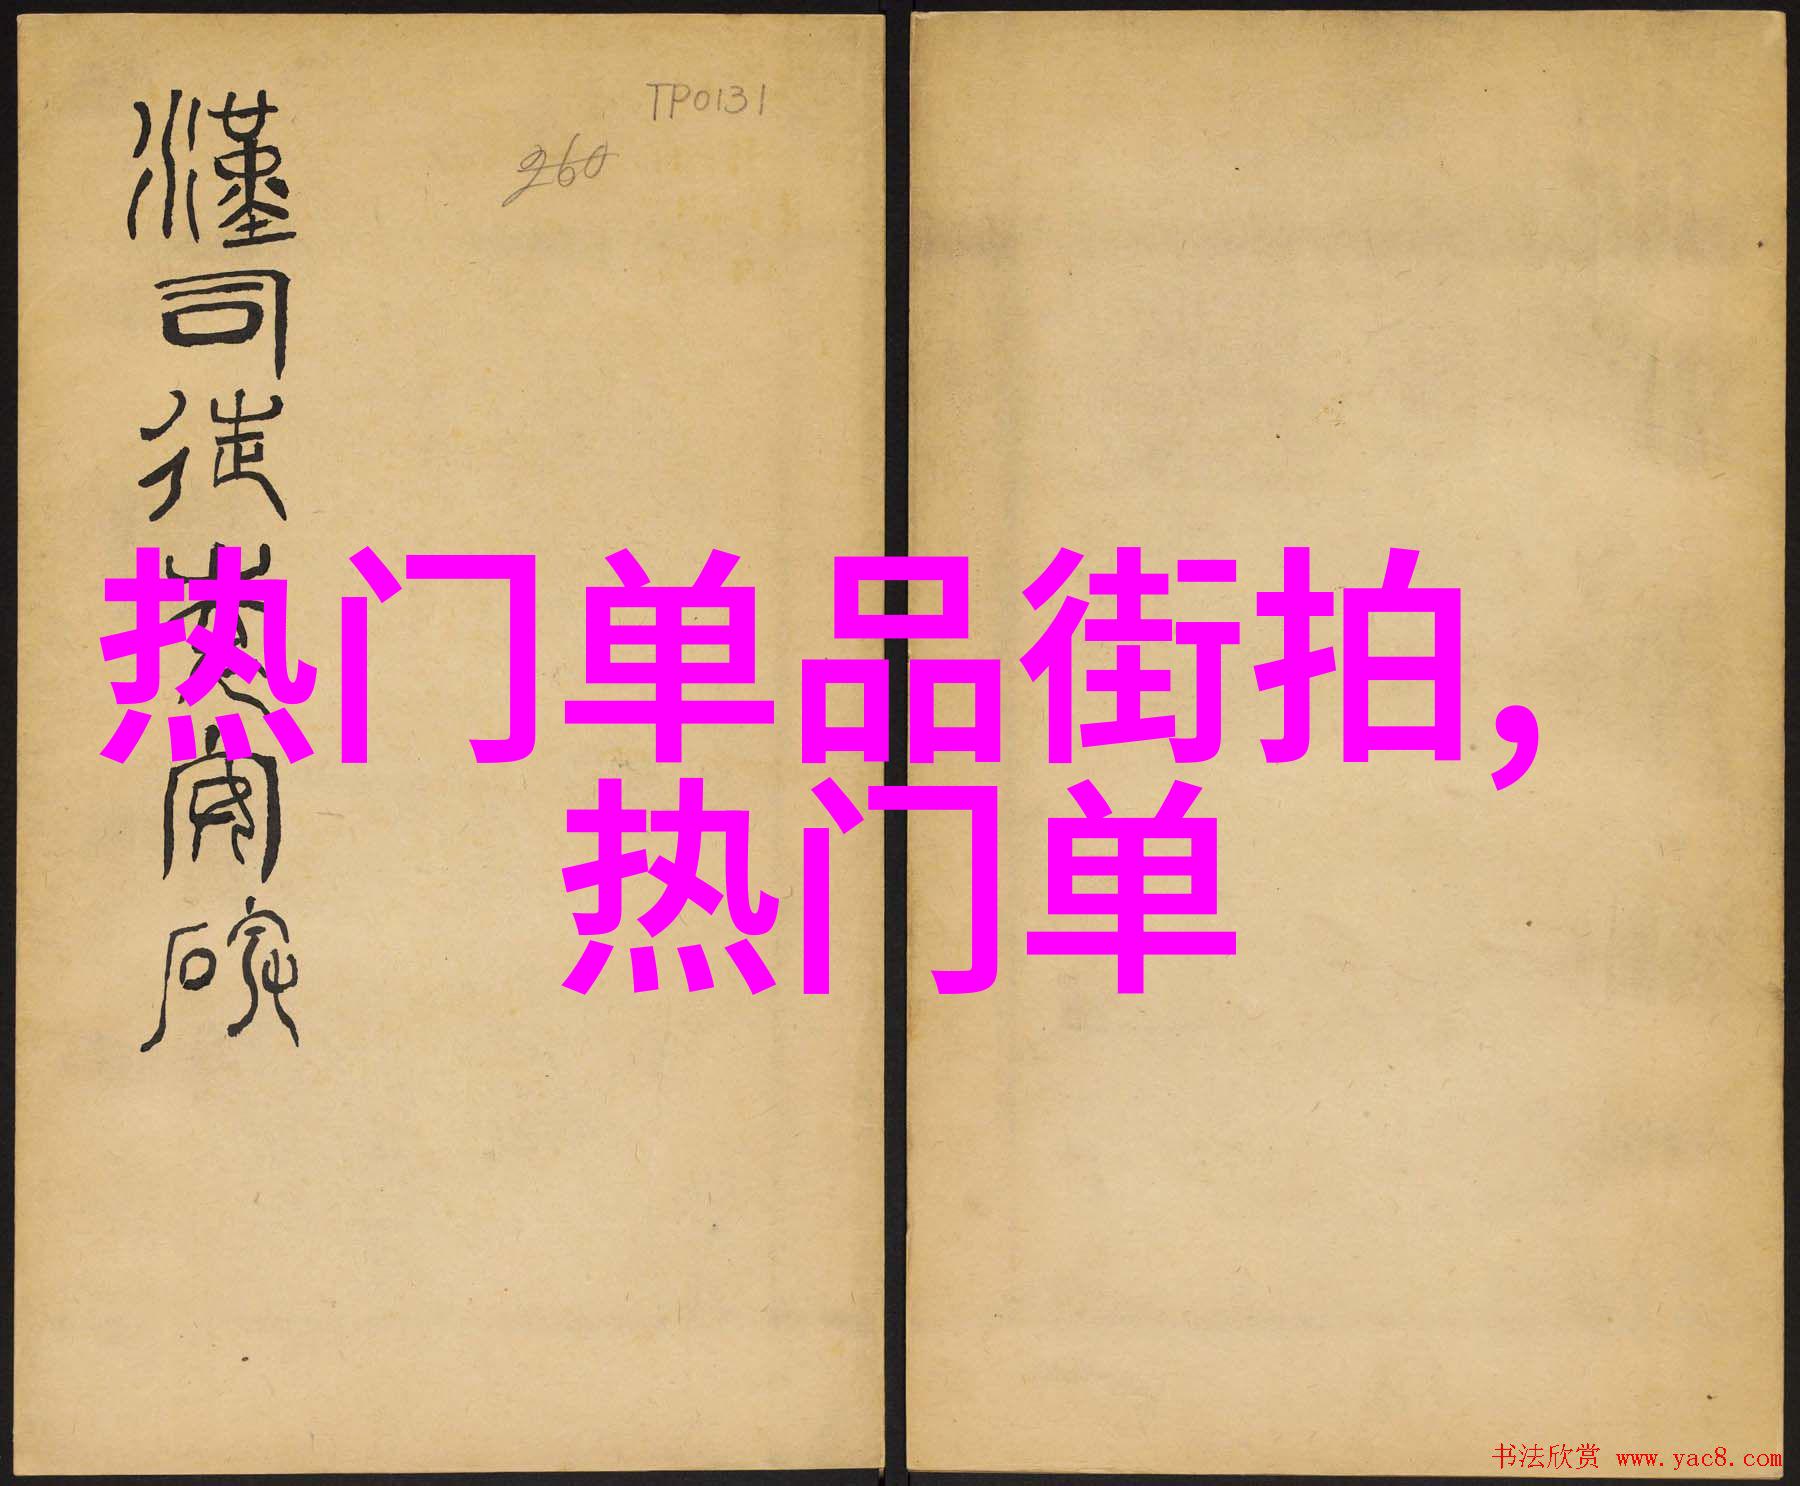 漢司徒袁安碑
TP0131
260
热门单品街拍,
热门单
书法欣赏 www.yac8.com